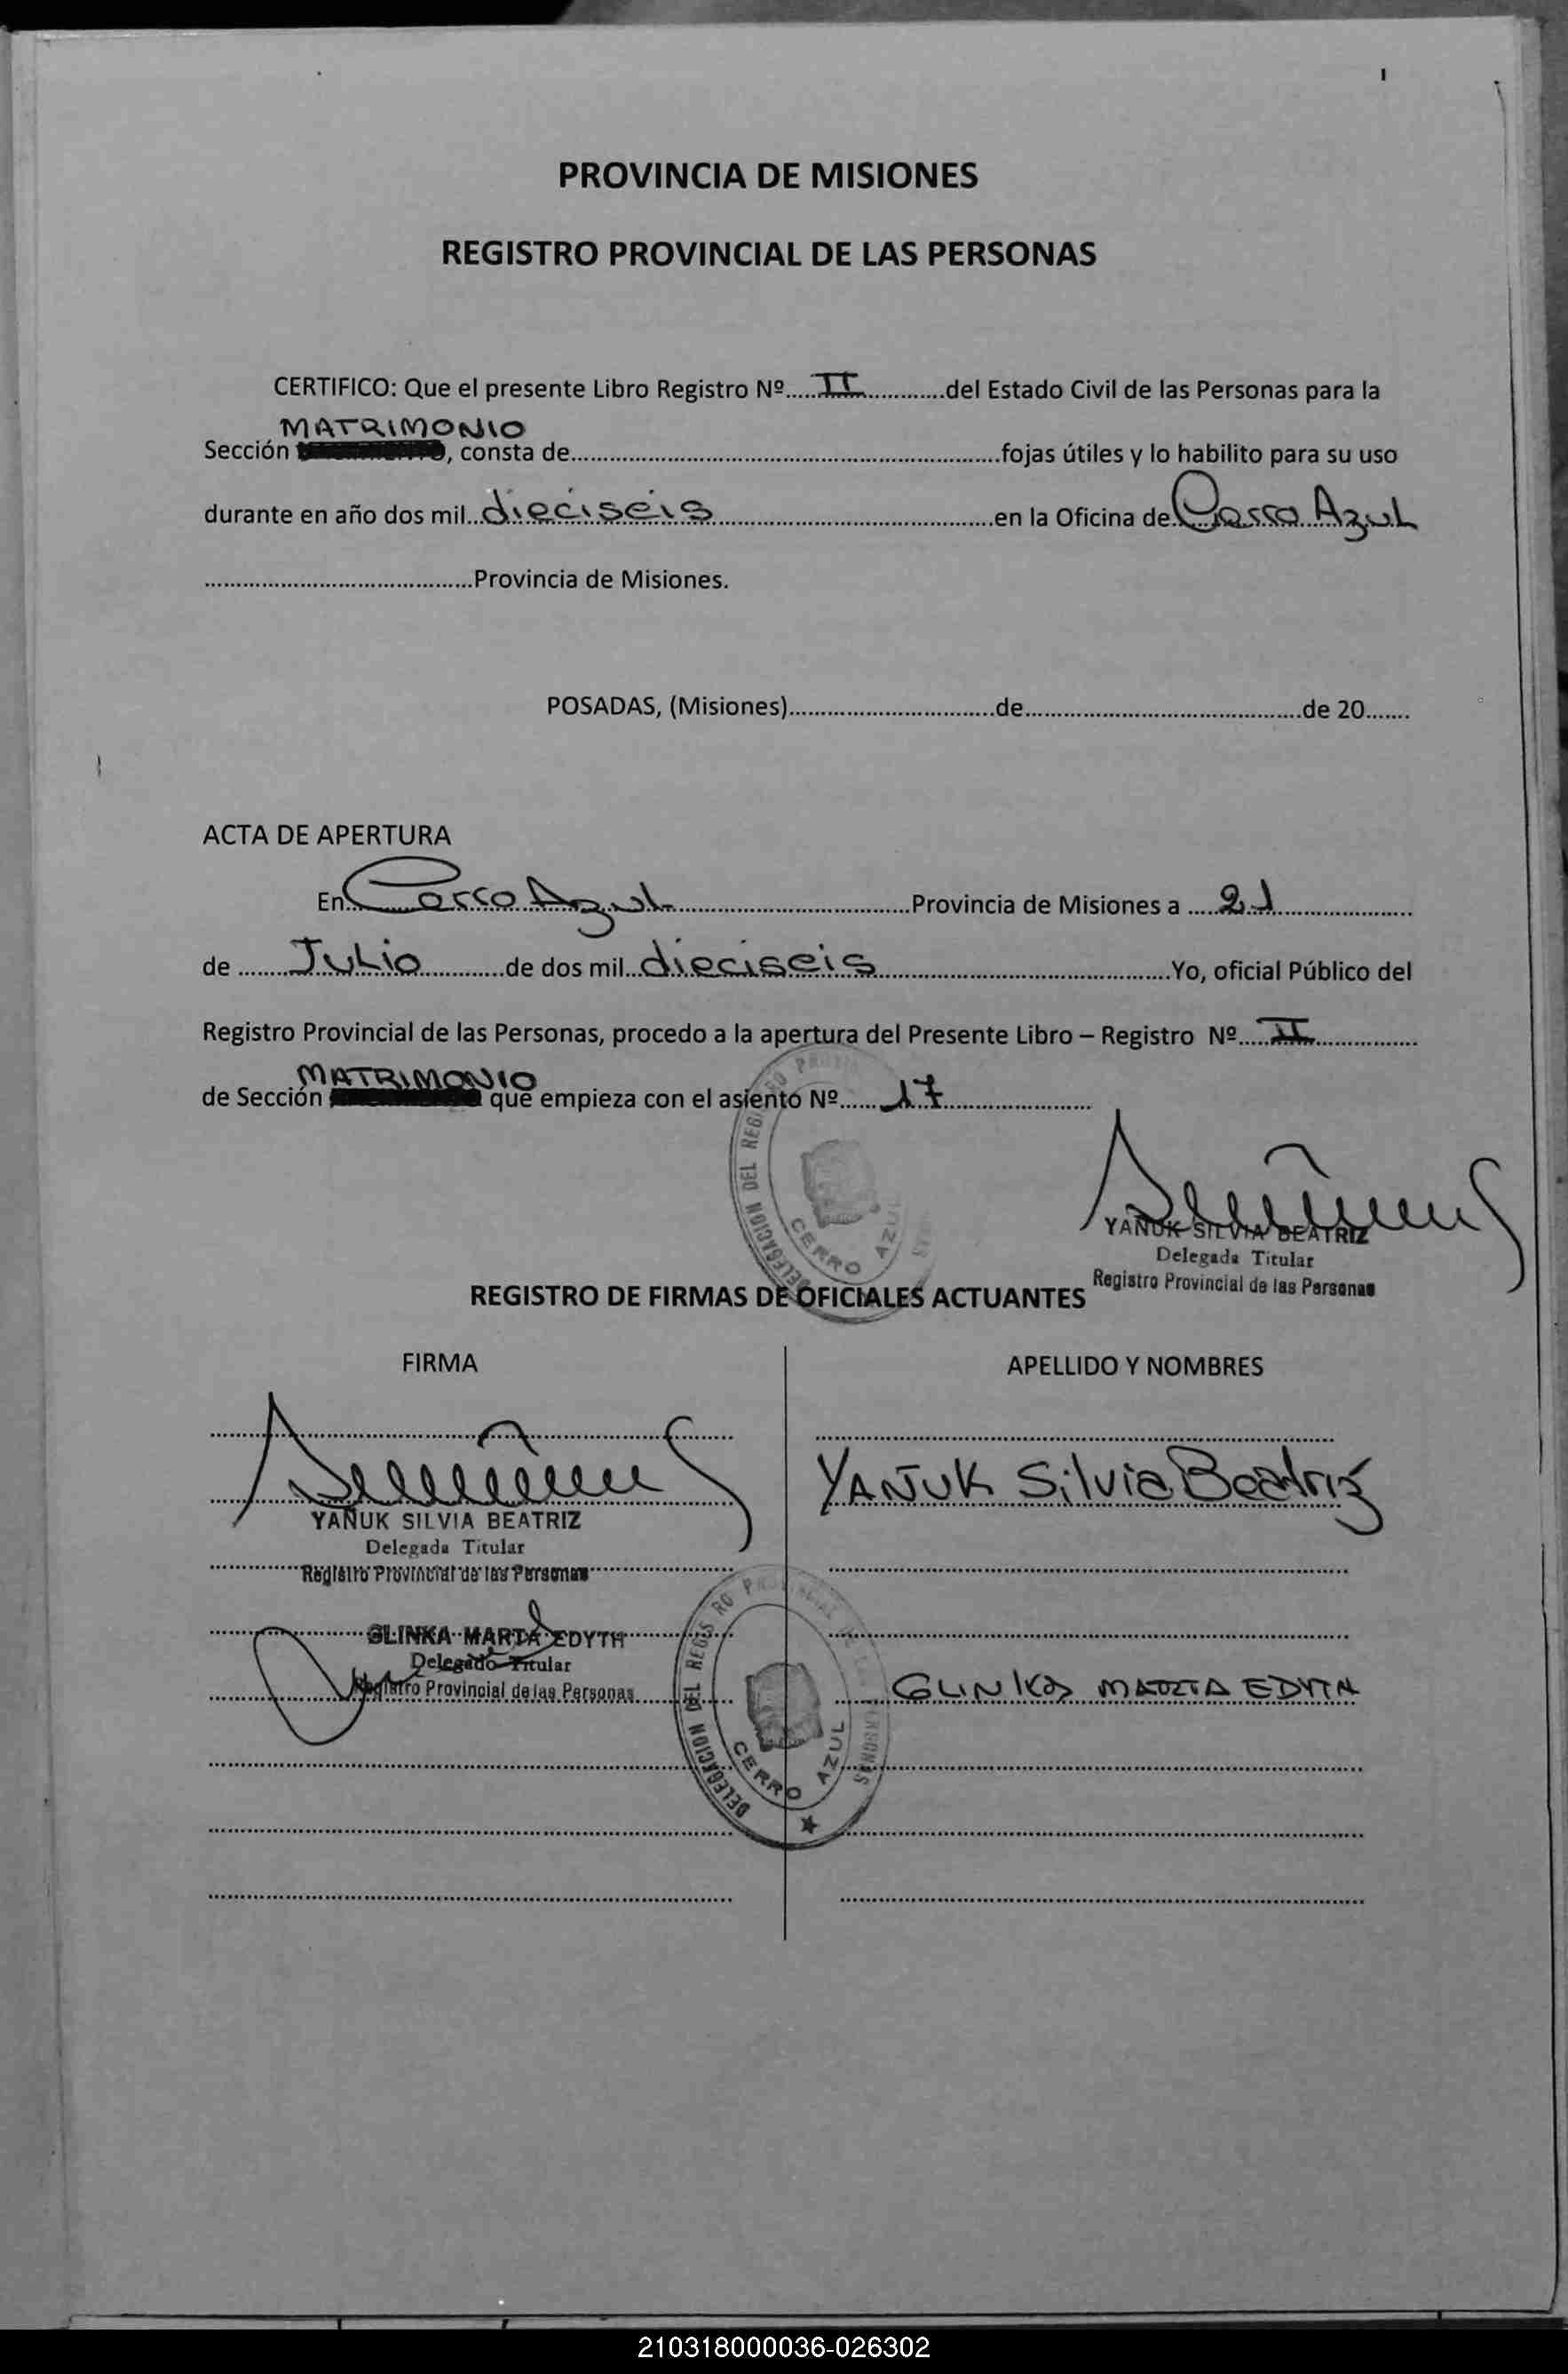 PROVINCIA DE MISIONES
REGISTRO PROVINCIAL DE LAS PERSONAS
CERTIFICO: Que el presente Libro Registro Nº.....II.............del Estado Civil de las Personas para la
MATRIMONIO
Sección , consta de......................................................................fojas útiles y lo habilito para su uso
durante en año dos mil..dieciseis.............................................en la Oficina de Cerro Azul
...........................................Provincia de Misiones.
POSADAS, (Misiones)................................de............................................de 20.......
ACTA DE APERTURA
En Cerro Azul......................................Provincia de Misiones a .....21......................
de ........Julio.............de dos mil..dieciseis...............................................Yo, oficial Público del
Registro Provincial de las Personas, procedo a la apertura del Presente Libro – Registro Nº.....II................
MATRIMONIO
de Sección que empieza con el asiento Nº......17........................
YAÑUK SILVIA BEATRIZ
Delegada Titular
Registro Provincial de las Personas
DELEGACION DEL REGISTRO
CERRO AZUL
REGISTRO DE FIRMAS DE OFICIALES ACTUANTES
FIRMA APELLIDO Y NOMBRES
YAÑUK Silvia Beatriz
YAÑUK SILVIA BEATRIZ
Delegada Titular
Registro Provincial de las Personas
GLINKA MARTA EDYTH
Delegado Titular
Registro Provincial de las Personas
GLINKA MARTA EDYTH
DELEGACION DEL REGISTRO PROVINCIAL DE LAS PERSONAS
CERRO AZUL
210318000036-026302